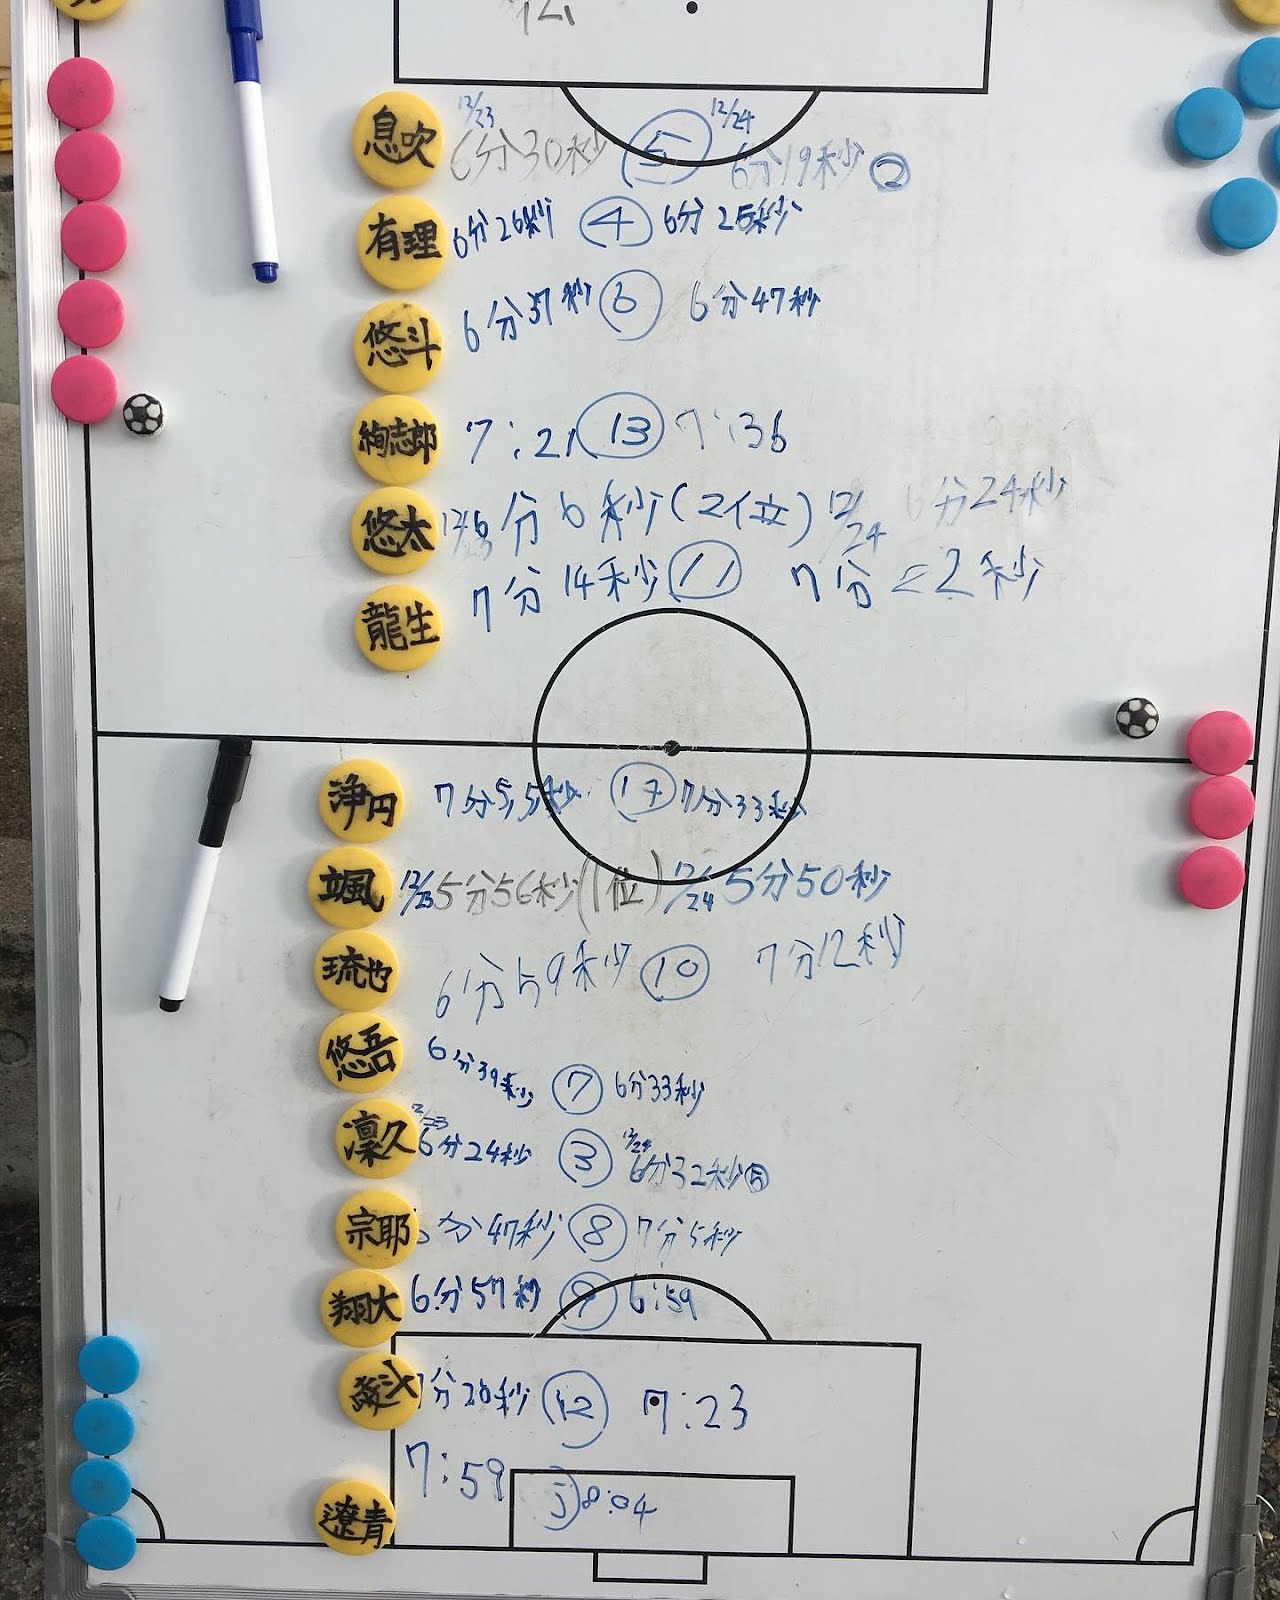 12/23 12/24
息吹 6分30秒 ⑤ 6分19秒 ②
有理 6分26秒 ④ 6分25秒
悠斗 6分37秒 ⑥ 6分47秒
絢志郎 7:21 ⑬ 7:36
悠太 12/23 6分6秒(2位) 12/24 6分24秒
龍生 7分14秒 ⑪ 7分22秒
浄円 7分55秒 7分33秒
颯 12/23 5分56秒(1位) 12/24 5分50秒
琉也 6分59秒 ⑩ 7分12秒
悠吾 6分39秒 ⑦ 6分33秒
12/23 12/24
凛久 6分24秒 ③ 6分32秒 ⑤
宗耶 分47秒 ⑧ 7分5秒
翔大 6分57秒 ⑨ 6:59
7分20秒 ⑫ 7:23
7:59 8:04
遼青